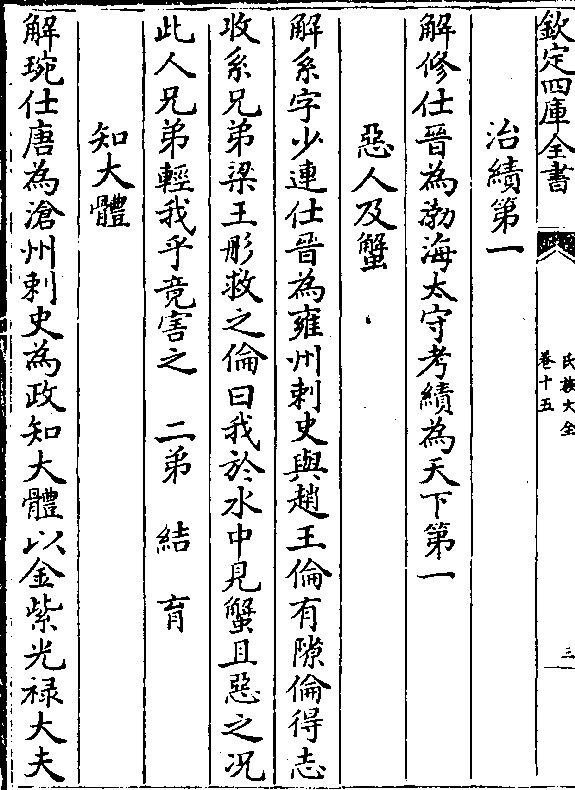 欽定四庫全書
氏族大全
卷十五
三
治績第一
解修仕晉為渤海太守考績為天下第一
惡人及蟹
解系字少連仕晉為雍州刺史與趙王倫有隙倫得志
收系兄弟梁王肜救之倫曰我於水中見蟹且惡之况
此人兄弟輕我乎竟害之 二弟 結 育
知大體
解琬仕唐為滄州刺史為政知大體以金紫光禄大夫